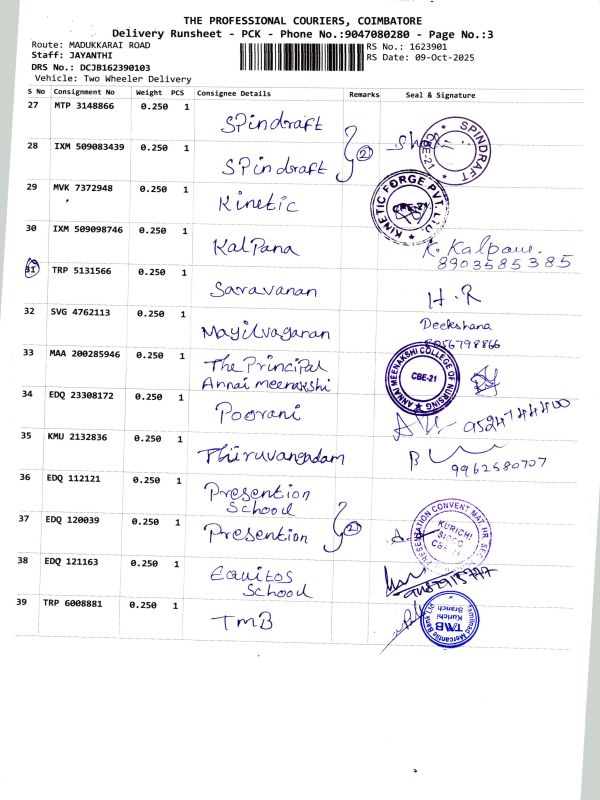 THE PROFESSIONAL COURIERS, COIMBATORE
Delivery Runsheet - PCK - Phone No.:9047080280 - Page No.:3
Route: MADUKKARAI ROAD
RS No.: 1623901
Staff: JAYANTHI
RS Date: 09-Oct-2025
DRS No.: DCJB162390103
Vehicle: Two Wheeler Delivery
S No Consignment No Weight PCS Consignee Details Remarks Seal & Signature
27 MTP 3148866 0.250 1 Spindraft
28 IXM 509083439 0.250 1 Spindraft (2) SPINDRAFT CBE-21
29 MVK 7372948 0.250 1 Kinetic KINETIC FORGE PVT. LTD. CBE-21
30 IXM 509098746 0.250 1 Kalpana K. Kalpana.
8903585385
31 TRP 5131566 0.250 1 Saravanan H.R
32 SVG 4762113 0.250 1 Mayilvaganan Deekshana
8056798866
33 MAA 200285946 0.250 1 The Principal
Annai meenakshi ANNAI MEENAKSHI COLLEGE OF NURSING CBE-21
34 EDQ 23308172 0.250 1 Poorani
35 KMU 2132836 0.250 1 Thiruvangadam
9962580707
36 EDQ 112121 0.250 1 Presention
School
37 EDQ 120039 0.250 1 Presention (2) PRESENTATION CONVENT MAT HR SEC KURICHI SIDCO CBE-21
38 EDQ 121163 0.250 1 Equitos
School
39 TRP 6008881 0.250 1 TMB Tamilnad Mercantile Bank Ltd TMB Kurichi Branch